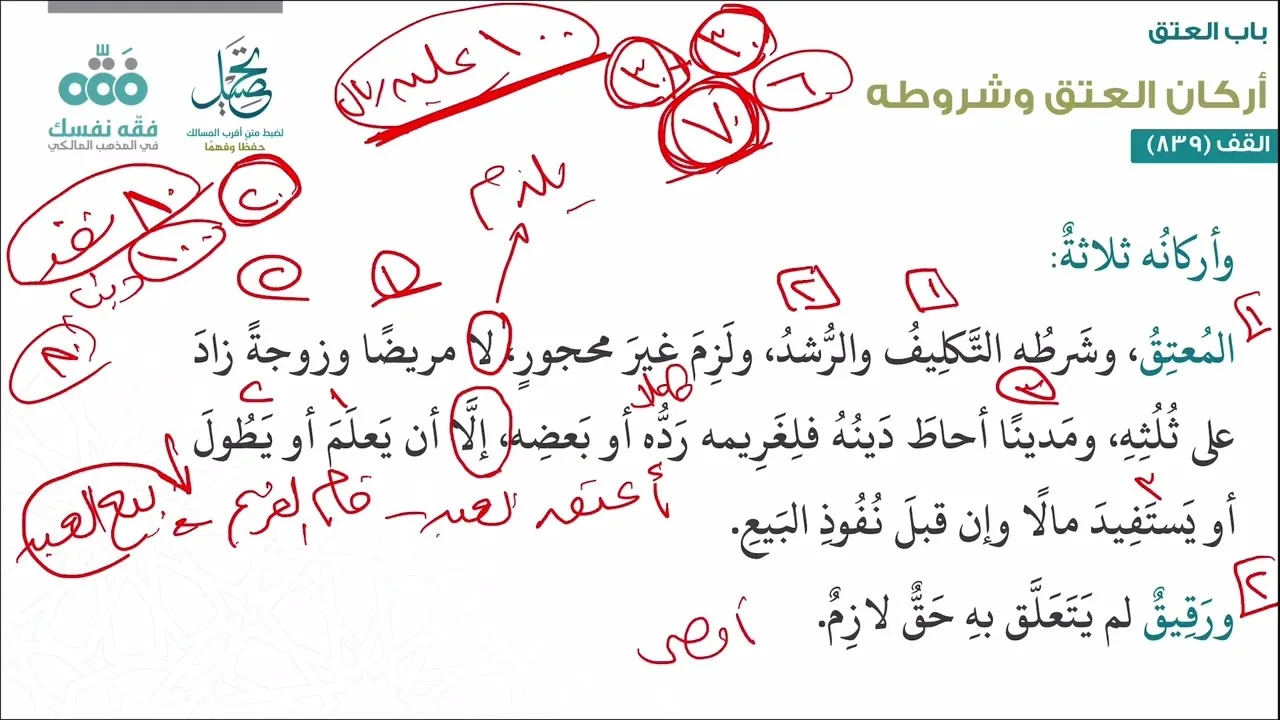 باب العتق
أركان العتق وشروطه
القف (٨٣٩)
تحصيل
لضبط متن أقرب المسالك
حفظًا وفهمًا
فقّه
فقّه نفسك
في المذهب المالكي
١٠٠ عليه ريال
٣٠
٣٠
٦
٧٠
يلزم
٨٠ نقد
١٠٠ دين
وأركانُه ثلاثةٌ:
١ ٢
١
المُعتِقُ، وشَرطُه التَّكلِيفُ والرُّشدُ، ولَزِمَ غيرَ محجورٍ، لا مريضًا وزوجةً زادَ
على ثُلُثِهِ، ومَدينًا أحاطَ دَينُهُ فلِغَريمه رَدُّه أو بَعضِه، إلَّا أن يَعلَمَ أو يَطُولَ
أعتقه لعبد – قام الغريم بيع العبد
أو يَستَفِيدَ مالًا وإن قبلَ نُفُوذِ البَيعِ.
٢
ورَقِيقٌ لم يَتَعَلَّق بهِ حَقٌّ لازِمٌ.
أوصى